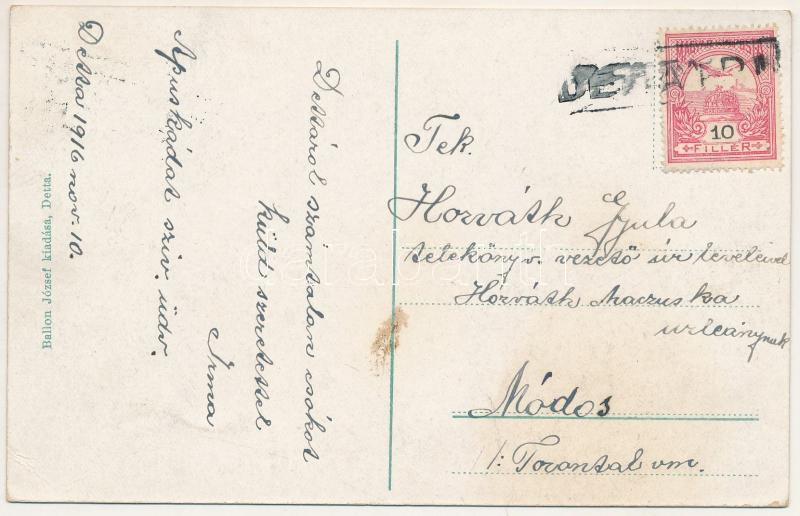 Detta 1916 nov. 10.
Apuskádat sziv. üdv.
Dettáról számtalan csókot
küld szeretettel
Irma
Ballon József kiadása, Detta.
10
FILLÉR
Tek.
Horváth Gyula
telekönyv. vezető úr leveleivel
Horváth Maczuska
urleánynak
Módos
Torontál vm.
darabanth